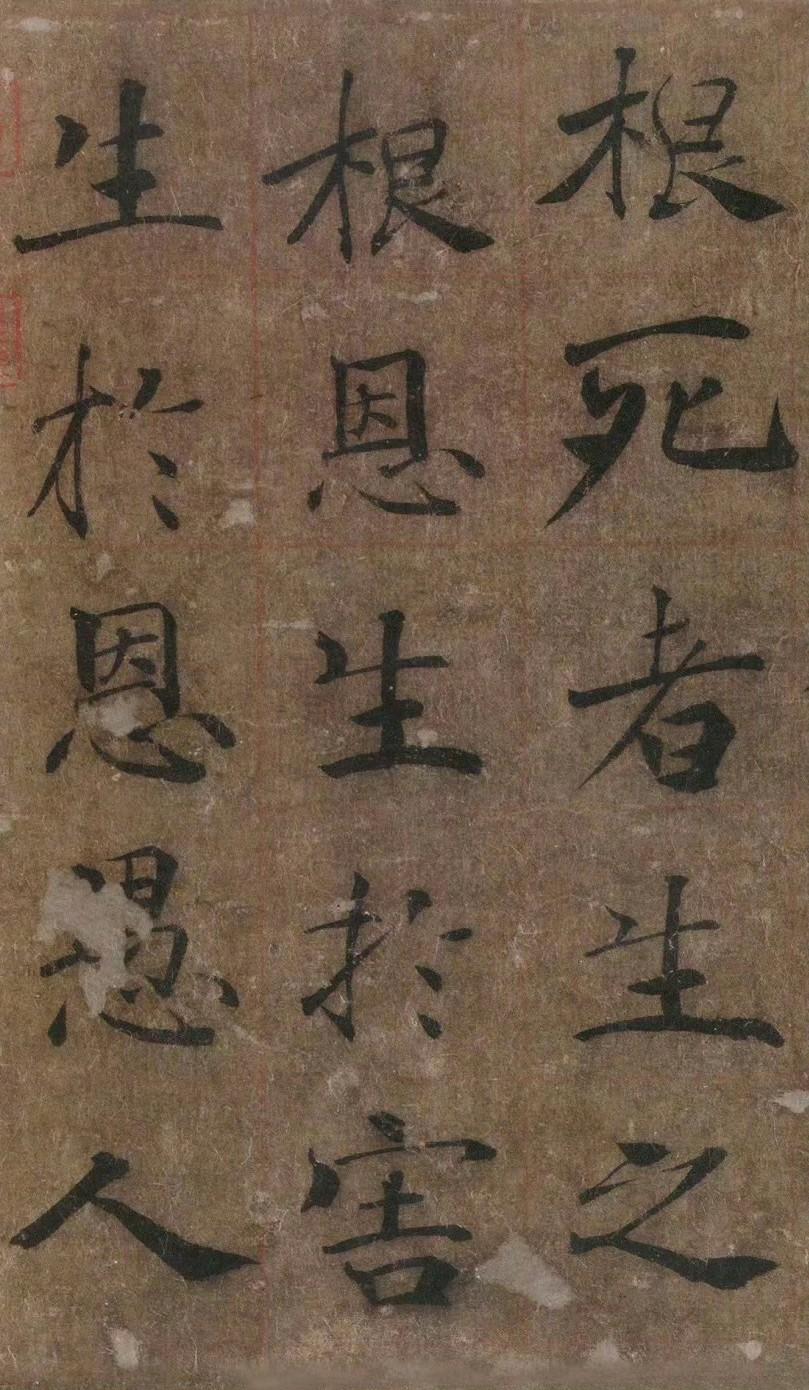 根死者生之
根恩生於害
生於恩愚人